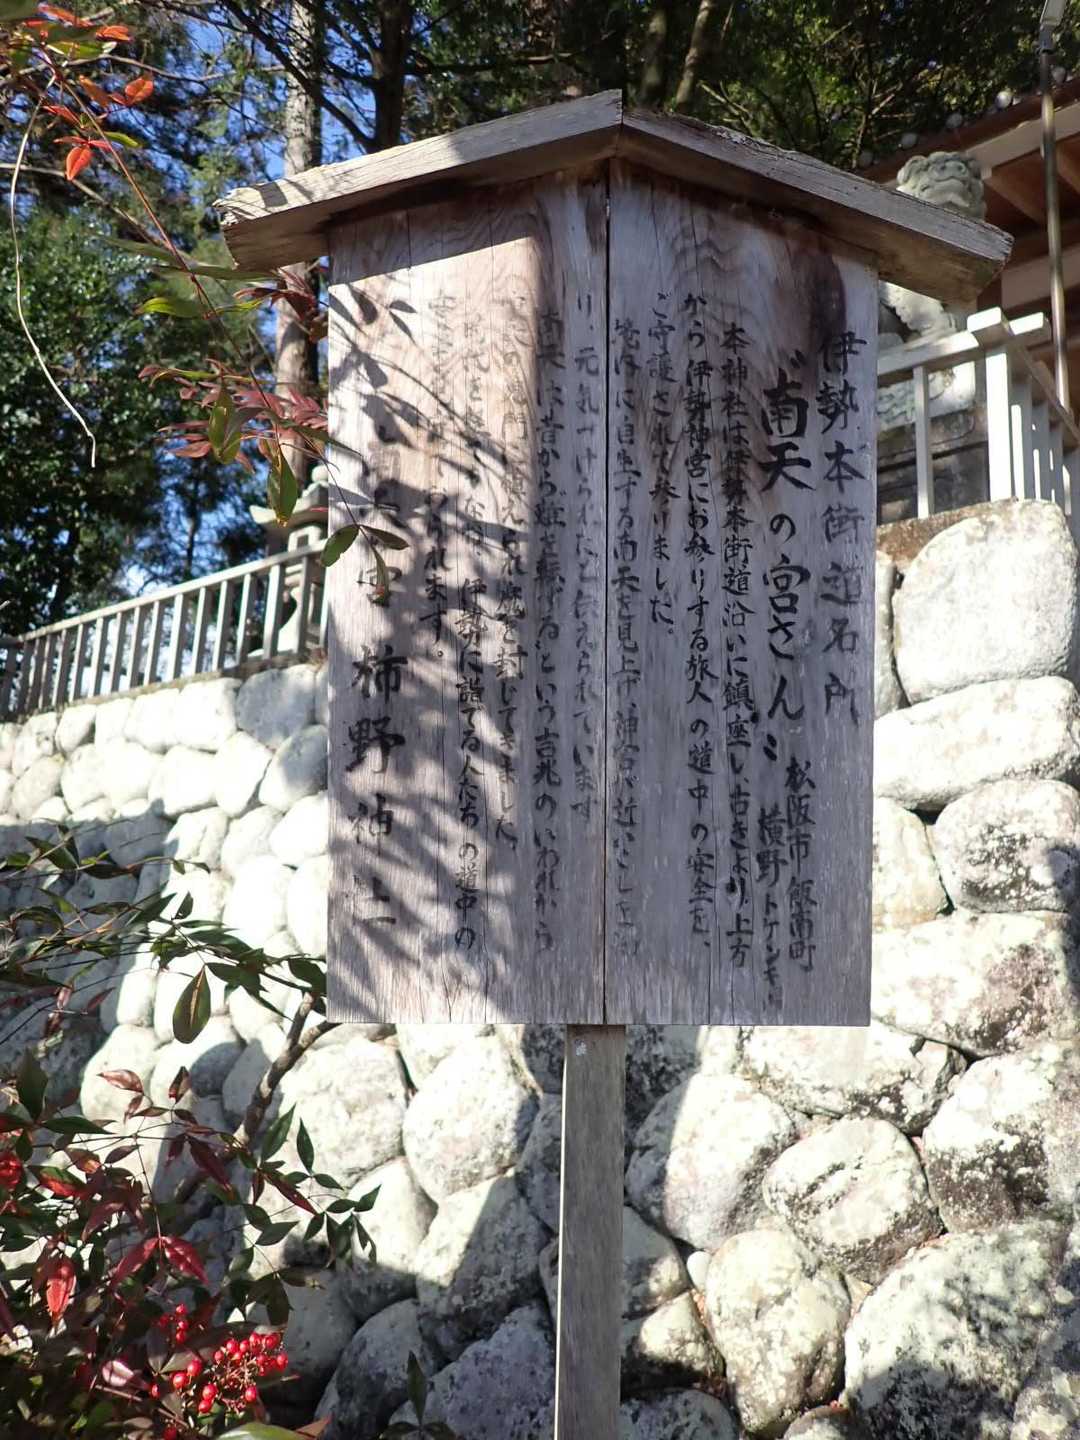 伊勢本街道名所
〝南天の宮さん〟
松阪市飯南町
横野
本神社は伊勢本街道沿いに鎮座し、古きより、上方
から伊勢神宮にお参りする旅人の道中の安全を、
ご守護されて参りました。
境内に自生する南天を見上げ、神宮が近いことを
り、元気づけられたと伝えられています
南天は昔から〝難を転げる〟という吉兆のいわれから
の鬼門に植えられ魔を封じてきました。
伊勢に詣てる人たちの道中の
られます。
宮 柿野神社